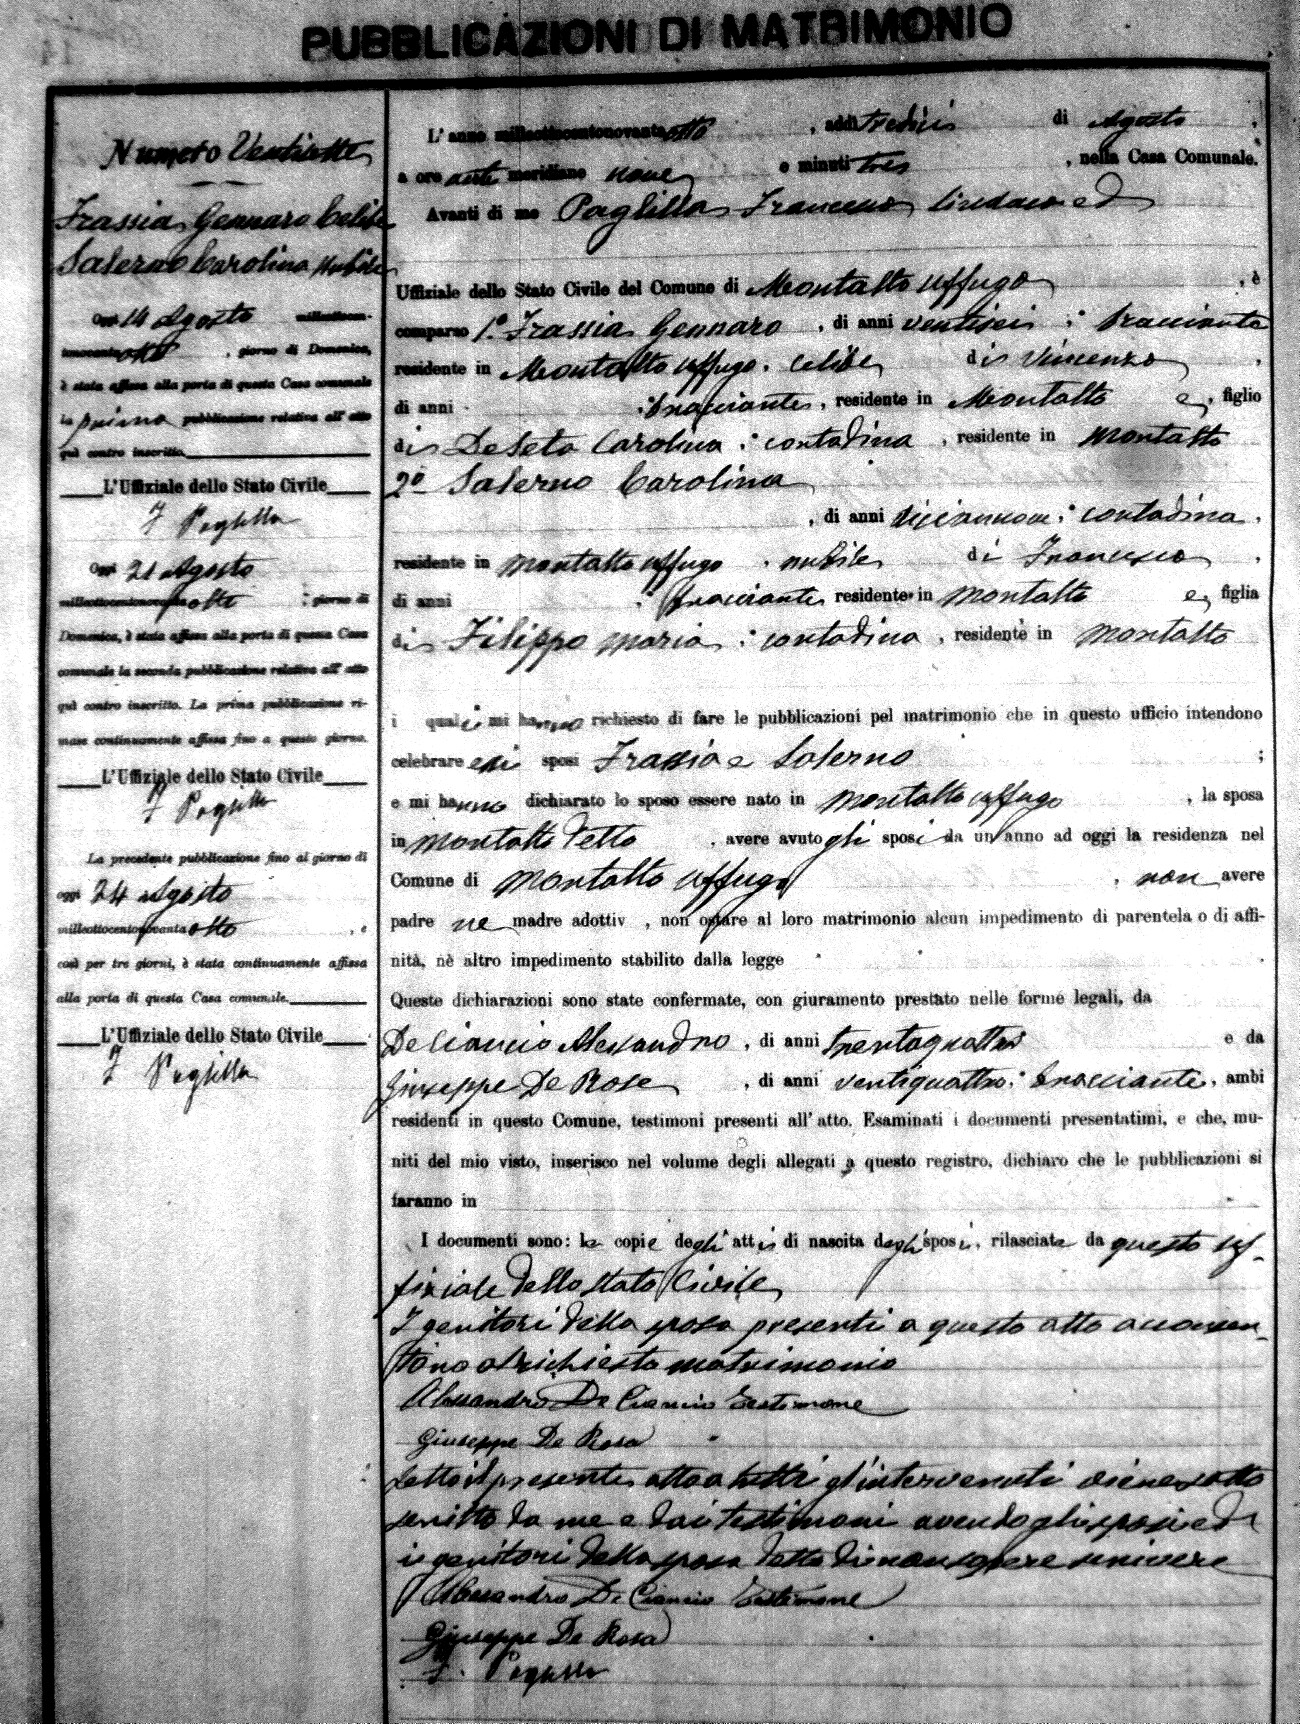 PUBBLICAZIONI DI MATRIMONIO
Numero Ventisette
Frassia Gennaro Celibe
Salerno Carolina Nubile
Oggi 14 Agosto millottocen-
tonovanta otto, giorno di Domenica,
è stata affissa alla porta di questa Casa comunale
la prima pubblicazione relativa all'atto
quì contro inscritto.
L'Uffiziale dello Stato Civile
F Paglilla
Oggi 21 Agosto
millottocentonovanta otto : giorno di
Domenica, è stata affissa alla porta di questa Casa
comunale la seconda pubblicazione relativa all'atto
quì contro inscritto. La prima pubblicazione ri-
mase continuamente affissa fino a questo giorno.
L'Uffiziale dello Stato Civile
F Paglilla
La precedente pubblicazione fino al giorno di
oggi 24 Agosto
millottocentonovanta otto, e
così per tre giorni, è stata continuamente affissa
alla porta di questa Casa comunale.
L'Uffiziale dello Stato Civile
F Paglilla
L'anno millottocentonovanta otto, addì tredici di Agosto,
a ore anti meridiane nove e minuti tres, nella Casa Comunale.
Avanti di me Paglilla Francesco Sindaco ed
Uffiziale dello Stato Civile del Comune di Montalto Uffugo, è
comparso 1.° Frassia Gennaro, di anni ventisei : bracciante
residente in Montalto Uffugo. celibe di Vincenzo,
di anni : bracciante, residente in Montalto e, figlio
di DeSeta Carolina : contadina, residente in Montalto
2° Salerno Carolina
, di anni diciannove : contadina.
residente in Montalto Uffugo. nubile di Francesco,
di anni . bracciante residente in Montalto e, figlia
di Filippo Maria : contadina, residente in Montalto
i quali mi hanno richiesto di fare le pubblicazioni pel matrimonio che in questo ufficio intendono
celebrare essi sposi Frassia e Salerno ;
e mi hanno dichiarato lo sposo essere nato in Montalto Uffugo, la sposa
in Montalto detto, avere avuto gli sposi da un'anno ad oggi la residenza nel
Comune di Montalto Uffugo, non avere
padre ne madre adottiv , non ostare al loro matrimonio alcun impedimento di parentela o di affi-
nità, nè altro impedimento stabilito dalla legge
Queste dichiarazioni sono state confermate, con giuramento prestato nelle forme legali, da
De Ciancio Alessandro, di anni trentaquattro e da
Giuseppe De Rose, di anni ventiquattro : bracciante, ambi
residenti in questo Comune, testimoni presenti all'atto. Esaminati i documenti presentatimi, e che, mu-
niti del mio visto, inserisco nel volume degli allegati a questo registro, dichiaro che le pubblicazioni si
faranno in
I documenti sono: le copie degli atti di nascita degli sposi, rilasciate da questo Uf-
fiziale dello Stato Civile
I genitori della sposa presenti a questo atto acconsen-
tono al richiesto matrimonio
Alessandro De Ciancio Testimone
Giuseppe De Rosa "
Letto il presente atto a tutti gl'intervenuti viene sotto
scritto da me e dai testimoni avendo gli sposi ed
i genitori della sposa detto di non sapere scrivere
Alessandro De Ciancio Testimone
Giuseppe De Rosa
F. Paglilla